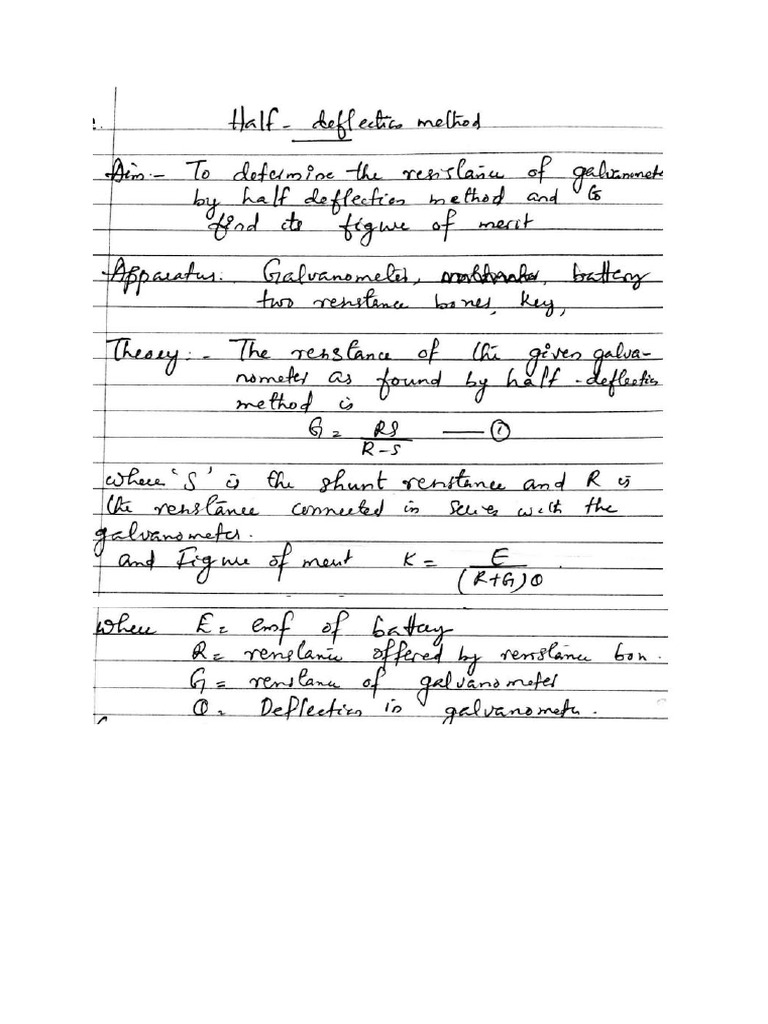 Half - deflection method
Aim:- To determine the resistance of galvanomete
by half deflection method and to
find its figure of merit
Apparatus: Galvanometer, battery
two resistance boxes, key,
Theory:- The resistance of the given galva-
nometer as found by half-deflection
method is
G = RS / R-S — ①
where 'S' is the shunt resistance and R is
the resistance connected in series with the
galvanometer.
and Figure of merit K = E / (R+G)θ.
where E = emf of battery
R = resistance offered by resistance box.
G = resistance of galvanometer
θ = Deflection in galvanometer.